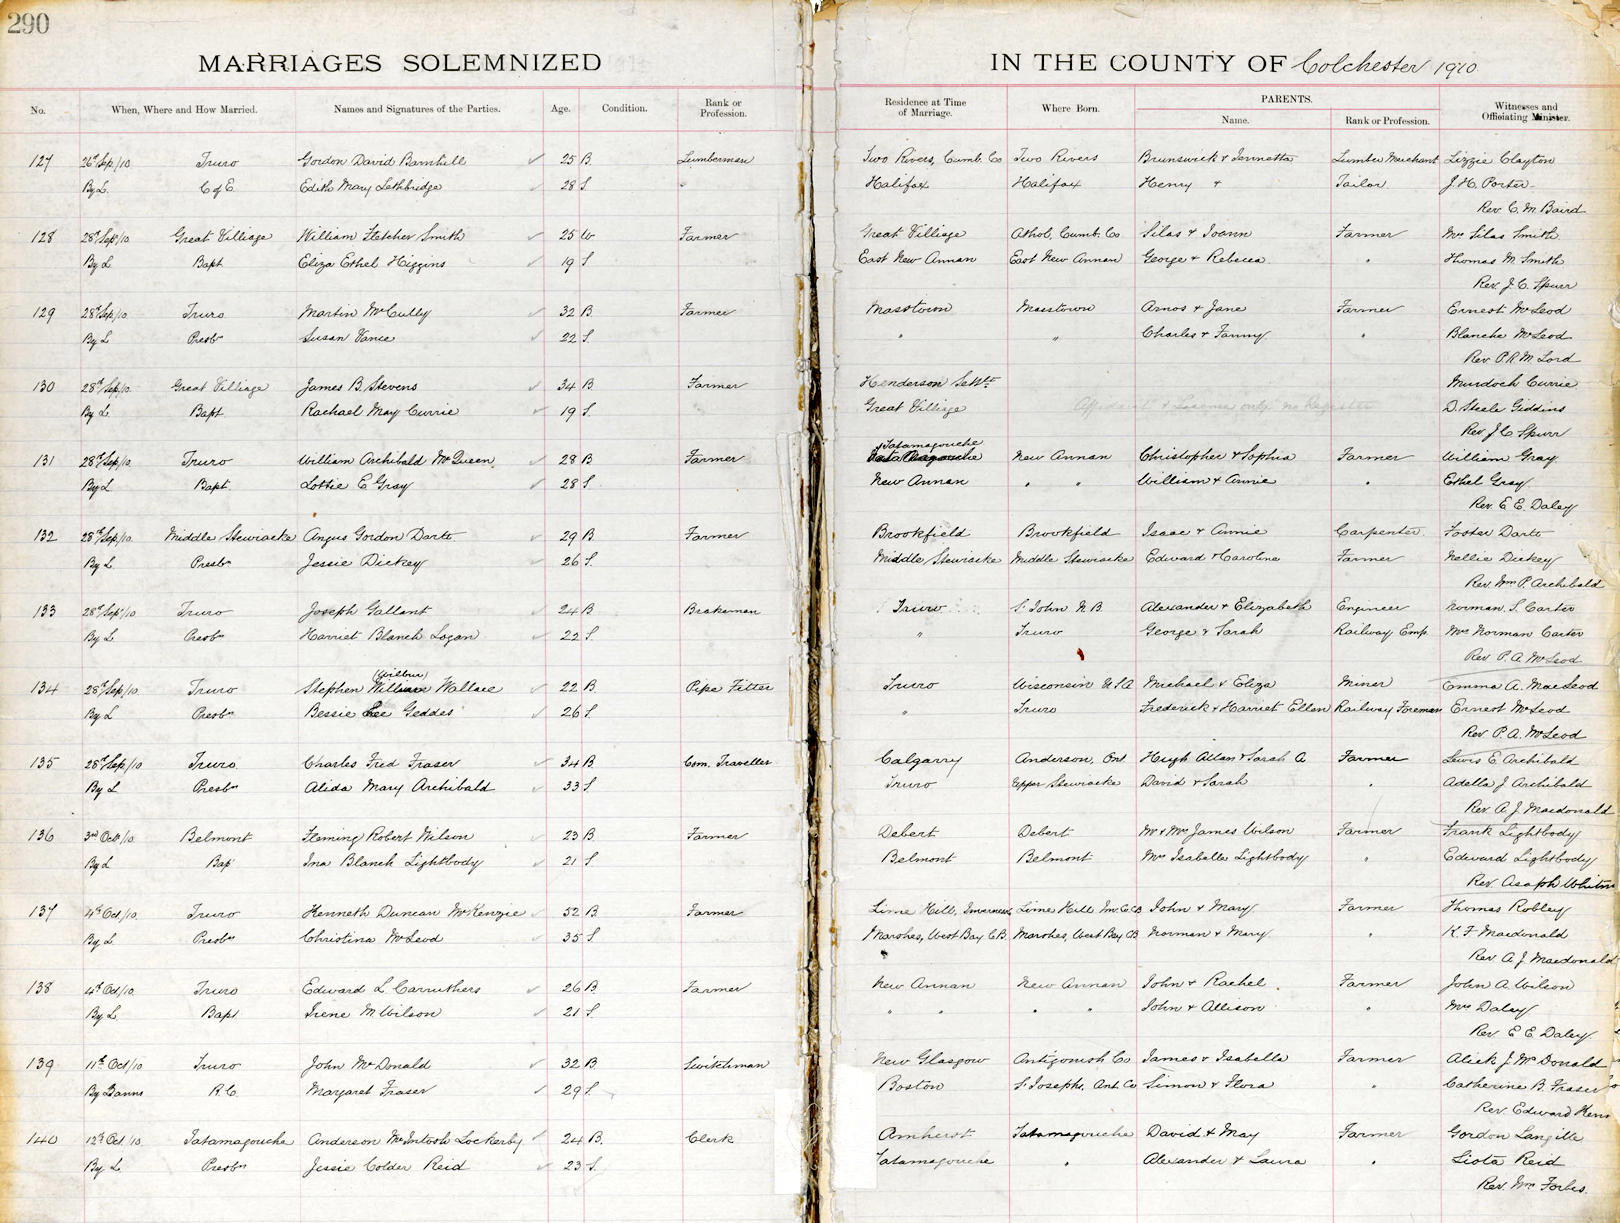 290
MARRIAGES SOLEMNIZED IN THE COUNTY OF Colchester 1910
No. When, Where and How Married. Names and Signatures of the Parties. Age. Condition. Rank or Profession. Residence at Time of Marriage. Where Born. PARENTS. Name. Rank or Profession. Witnesses and Officiating Minister.
127 26th Sep/10 Truro Gordon David Barnhill 25 B. Lumberman Two Rivers, Cumb. Co Two Rivers Brunswick & Jennetta Lumber Merchant Lizzie Clayton
By L. C of E. Edith Mary Lethbridge 28 S. " Halifax Halifax Henry & Tailor J. H. Porter
Rev. C. M. Baird
128 28th Sep/10 Great Villiage William Fletcher Smith 25 W Farmer Great Villiage Athol, Cumb. Co Silas & Joann Farmer Mrs Silas Smith
By L Bapt Eliza Ethel Higgins 19 S East New Annan East New Annan George & Rebecca " Thomas M. Smith
Rev. J. C. Spurr
129 28th Sep/10 Truro Martin McCully 32 B. Farmer Masstown Masstown Amos & Jane Farmer Ernest McLeod
By L Presbn Susan Vance 22 S " " Charles & Fanny " Blanche McLeod
Rev P. R. M. Lord
130 28th Sep/10 Great Villiage James B. Stevens 34 B. Farmer Henderson Settlt Murdoch Currie
By L Bapt Rachael May Currie 19 S. Great Villiage Affidavit & License only no Register D. Steele Giddins
Rev J. C. Spurr
131 28th Sep/10 Truro William Archibald McQueen 28 B Farmer Tatamagouche New Annan Christopher & Sophia Farmer William Gray
By L Bapt. Lottie E Gray 28 S. New Annan " " William & Annie " Ethel Gray
Rev. E. E. Daley
132 28th Sep/10 Middle Stewiacke Angus Gordon Darto 29 B. Farmer Brookfield Brookfield Isaac & Annie Carpenter Foster Darto
By L Presbn Jessie Dickey 26 S. Middle Stewiacke Middle Stewiacke Edward & Caroline Farmer Nellie Dickey
Rev. Wm P. Archibald
133 28th Sep/10 Truro Joseph Gallant 24 B Brakeman Truro St John N B. Alexander & Elizabeth Engineer Norman. S. Carter
By L Presbn Harriet Blanch Logan 22 S. " Truro George & Sarah Railway Emp. Mrs Norman Carter
Rev P. A. McLeod
134 28th Sep/10 Truro Stephen William (Wilbur) Wallace 22 B. Pipe Fitter Truro Wisconsin U.S.A Michael & Eliza Miner Emma A. MacLeod
By L Presbn Bessie Lee Geddes 26 S. " Truro Frederick & Harriet Ellen Railway Foreman Ernest McLeod
Rev. P. A. McLeod
135 28th Sep/10 Truro Charles Fred Fraser 34 B Com. Traveller Calgarry Anderson, Ont Hugh Allan & Sarah A. Farmer Lewis E. Archibald
By L Presbn Alida Mary Archibald 33 S Truro Upper Stewiacke David & Sarah " Adella J Archibald
Rev. A. J Macdonald
136 3rd Oct/10 Belmont Fleming Robert Wilson 23 B. Farmer Debert Debert Mr & Mrs James Wilson Farmer Frank Lightbody
By L Bap Ina Blanch Lightbody 21 S Belmont Belmont Mrs Isabella Lightbody " Edward Lightbody
Rev. Asaph Whitm
137 4th Oct/10 Truro Kenneth Duncan McKenzie 52 B. Farmer Lime Hill, Inverness, Lime Hill Inv. C. CB John & Mary Farmer Thomas Robley
By L Presbn Christina McLeod 35 S Marshes, West Bay C.B. Marshes, West Bay CB Norman & Mary " K. F Macdonald
Rev A. J Macdonald
138 4th Oct/10 Truro Edward L Carruthers 26 B. Farmer New Annan New Annan John & Rachel Farmer John A. Wilson
By L Bapt Irene M. Wilson 21 S. " " " " John & Allison " Mrs Daley
Rev. E E. Daley
139 11th Oct/10 Truro John McDonald 32 B. Switchman New Glasgow Antigonish Co James & Isabella Farmer Alick J. McDonald
By Banns R. C. Margaret Fraser 29 S. Boston St Josephs, Ant Co Simon & Flora " Catherine B. Fraser
Rev. Edward Kenn
140 12th Oct/10 Tatamagouche Anderson McIntosh Lockerby 24 B. Clerk Amherst Tatamagouche David & May Farmer Gordon Langille
By L. Presbn Jessie Colder Reid 23 S. Tatamagouche " Alexander & Laura " Liota Reid
Rev. Wm Forbes.